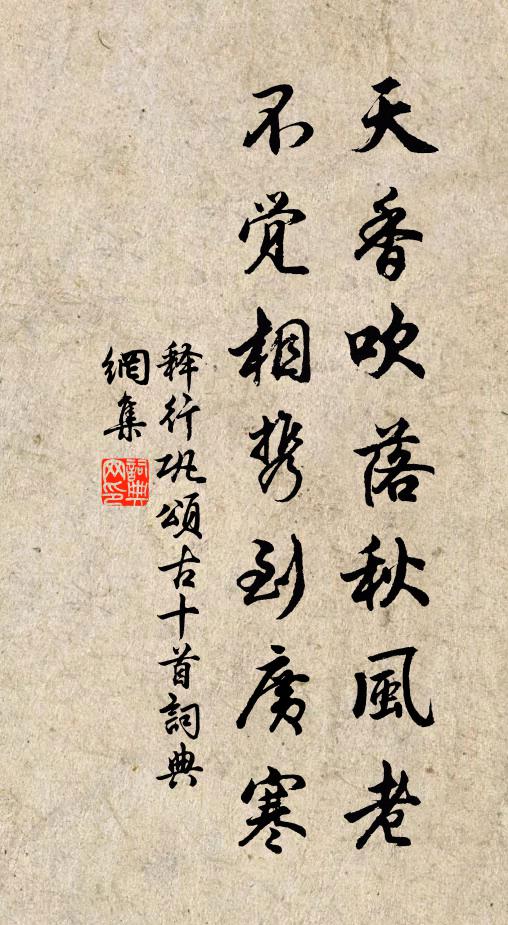 天香吹落秋風老
不覚相携到廣寒
释行巩頌古十首詞典
網集
詞典
网印